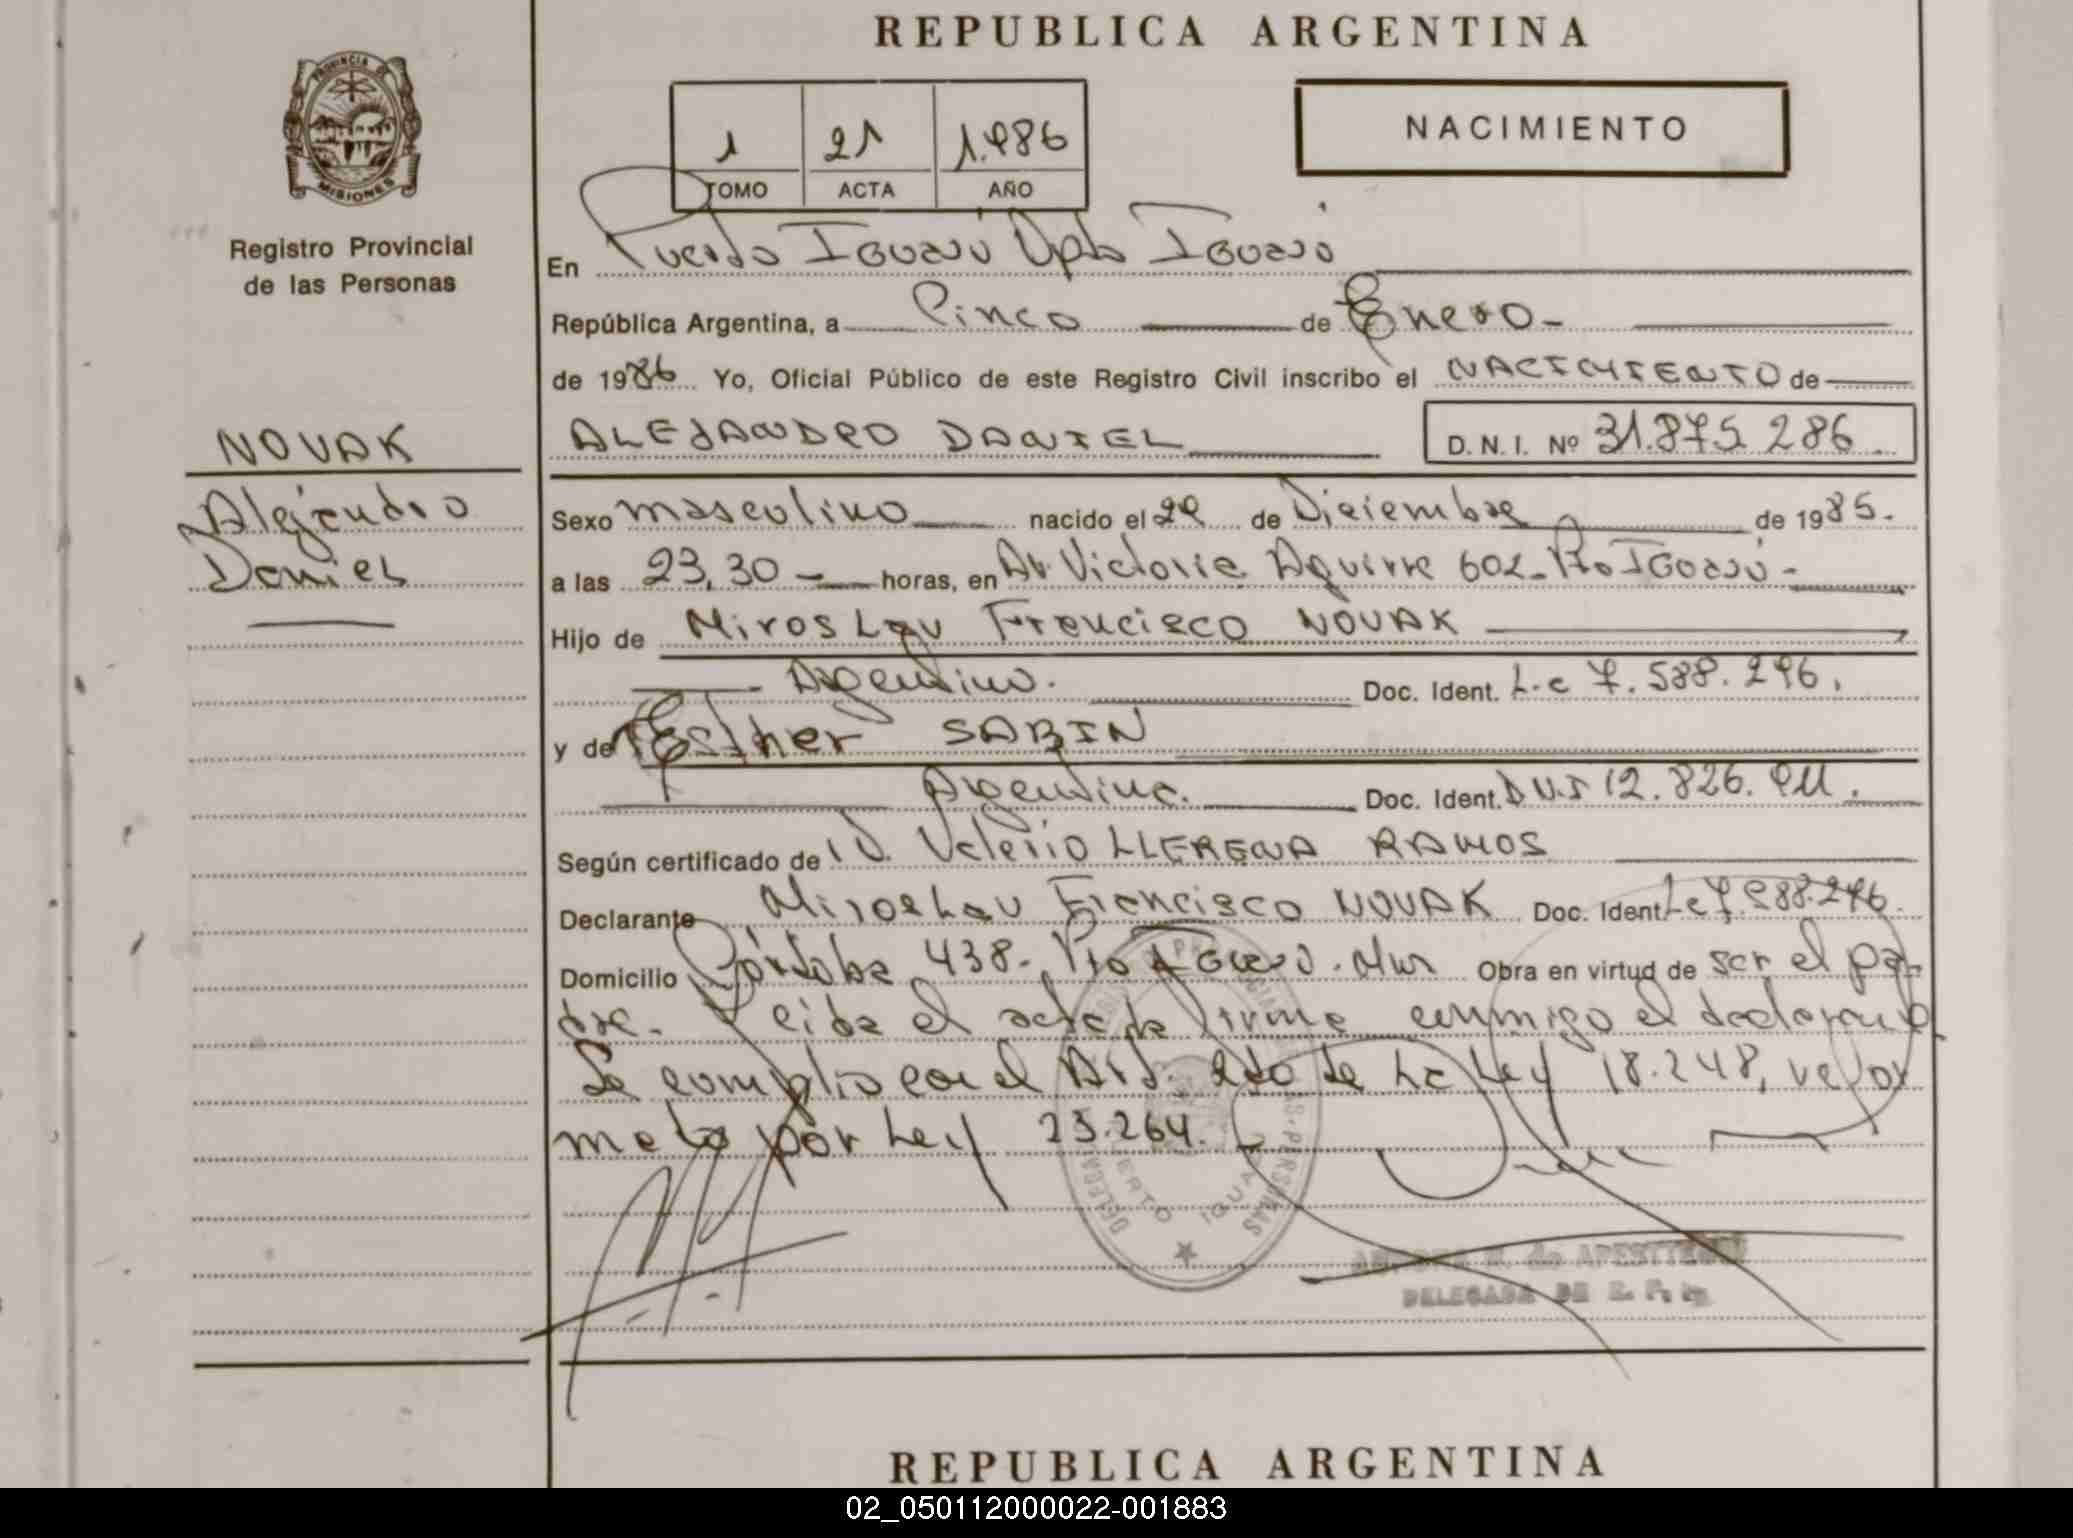 REPUBLICA ARGENTINA
PROVINCIA DE
MISIONES
Registro Provincial
de las Personas
1 21 1.986
TOMO ACTA AÑO
NACIMIENTO
En Puerto Iguazú Dpto Iguazú
República Argentina, a Cinco de Enero
de 1986 Yo, Oficial Público de este Registro Civil inscribo el NACIMIENTO de
NOVAK
ALEJANDRO DANIEL D. N. I. Nº 31.875.286
Alejandro
Daniel
Sexo masculino nacido el 29 de Diciembre de 1985.
a las 23,30 horas, en Av. Victoria Aguirre 602 - Pto Iguazú -
Hijo de Miroslav Francisco NOVAK
Argentino. Doc. Ident. L.e 7.588.296.
y de Esther SABIN
Argentina. Doc. Ident. D.N.I 12.826.911.
Según certificado de D. Valerio LLERENA RAMOS
Declarante Miroslav Francisco NOVAK Doc. Ident. Le 7.588.296.
Domicilio Córdoba 438 - Pto Iguazú. Mnes Obra en virtud de ser el pa-
dre. Leída el acta la firma conmigo el declarante
Se cumplió con el Art. 2do de La Ley 18.248, refor
mada por Ley 23.264.
DELEGADA DE R. P. P.
REPUBLICA ARGENTINA
02_050112000022-001883